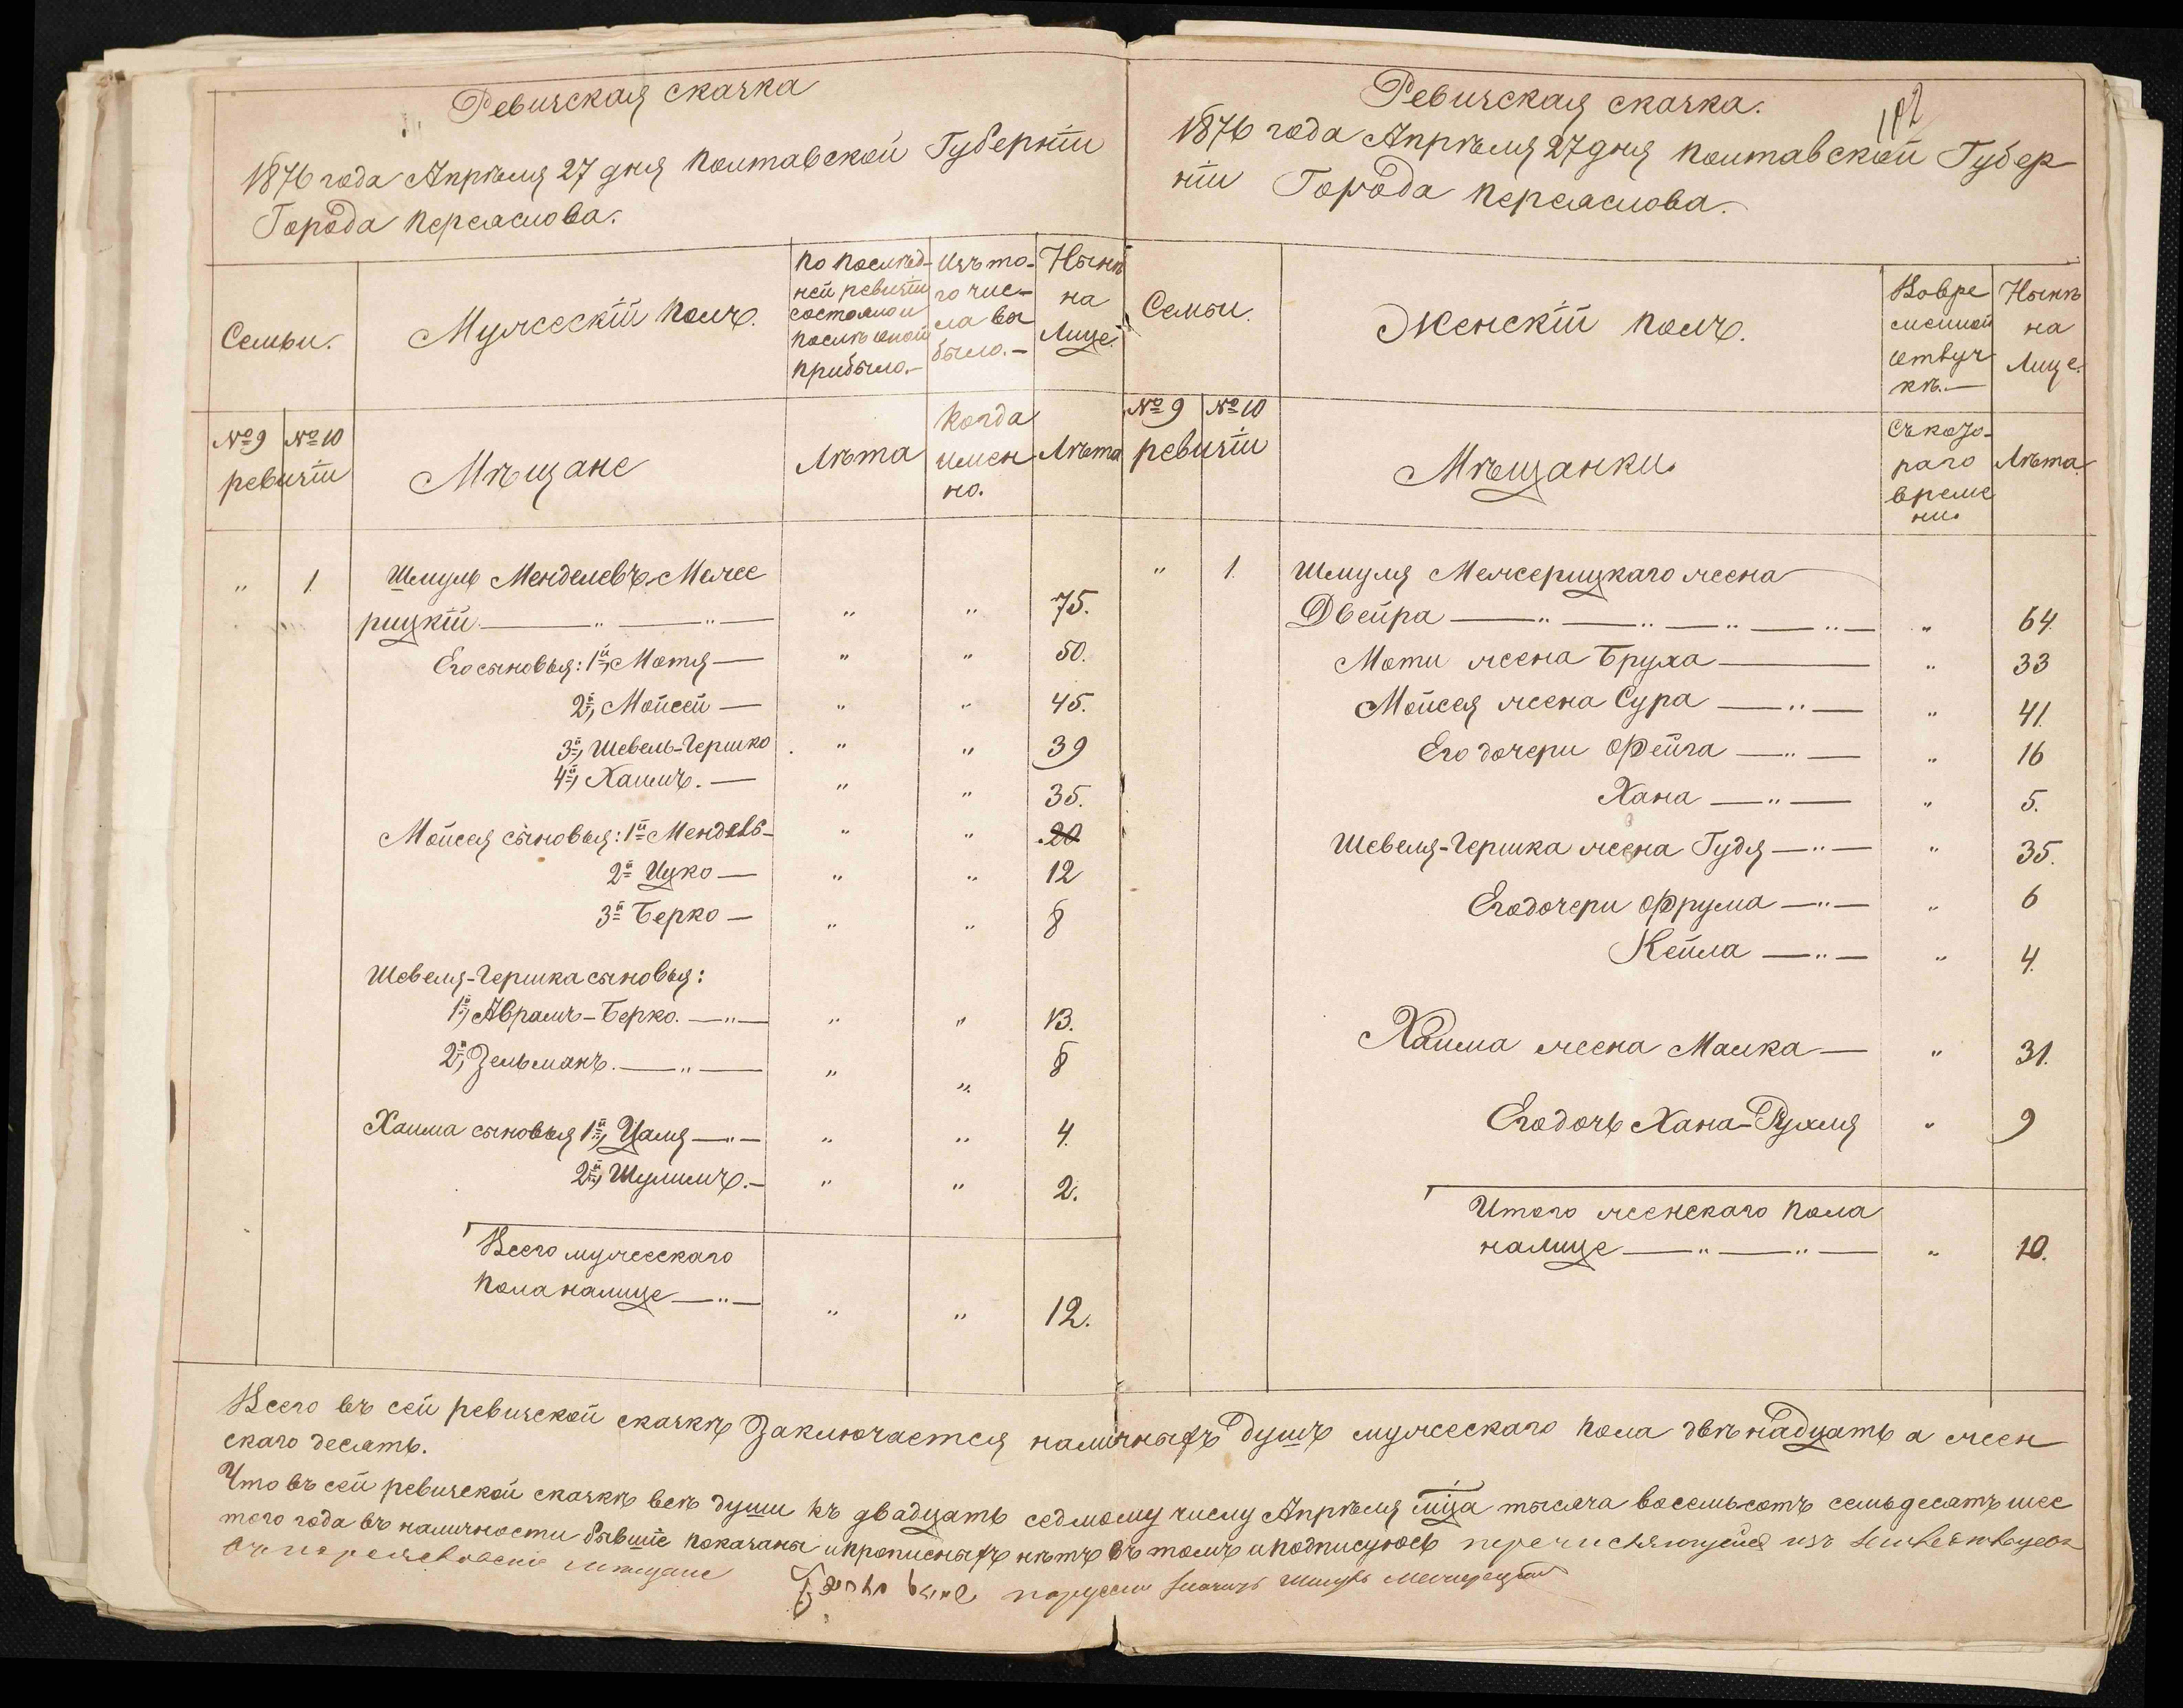 Ревизская сказка
1876 года Апрѣля 27 дня Полтавской Губерніи
Города Переяслова.
Семьи.
Мужескій полъ.
По послѣд-
ней ревизіи
состояло и
послѣ оной
прибыло.-
Изъ то-
го чис-
ла вы
было.-
Нынѣ
на
Лице.
№ 9 № 10
ревизіи
Мѣщане
Лѣта
Когда
имен
но.
Лѣта
" 1 Шмуль Менделевъ Меже
рицкій " " " " 75.
Его сыновья: 1й, Мотя — " " 50.
2й, Мойсей — " " 45.
3й, Шевель-Гершко . " " 39
4й, Хаимъ. — " " 35.
Мойсея сыновья: 1й Мендель- " " 20
2й Ицко — " " 12
3й Берко — " " 8
Шевеля-Гершка сыновья:
1й, Аврамъ-Берко. —"— " " 13.
2й, Зельманъ. —"— " " 8
Хаима сыновья 1й, Цаля —"— " " 4.
2й, Шулимъ. — " " 2.
Всего мужескаго
пола налице —"— " " 12.
Ревизская сказка.
102
1876 года Апрѣля 27 дня Полтавской Губер
ніи Города Переяслова.
Семьи.
Женскій полъ.
Вовре
менной
отлуч
кѣ.—
Нынѣ
на
Лице.
№ 9 № 10
ревизіи
Мѣщанки.
Съ кото-
раго
време
ни.
Лѣта.
" 1. Шмуля Межерицкаго жена
Двейра —"—"—"—"— " 64.
Моти жена Бруха — " 33
Мойсея жена Сура —"— " 41.
Его дочери Фейга —"— " 16
Хана —"— " 5.
Шевеля-Гершка жена Гудя —"— " 35.
Его дочери Фрума —"— " 6
Кейла —"— " 4.
Хаима жена Малка — " 31.
Его дочь Хана-Рухля " 9
Итого женскаго пола
налице —"—"— " 10.
Всего въ сей ревизской сказкѣ заключается наличныхъ душъ мужескаго пола двѣнадцать а жен
скаго десять.
Что въ сей ревизской сказкѣ всѣ души къ двадцать седмому числу Апрѣля мца тысяча восемьсотъ семьдесятъ шес
того года въ наличности бывшіе показаны и прописныхъ нѣтъ въ томъ и подписуюсь перечисляющейся изъ
въ переяславскіе мещане
Шмуль Межерицкій